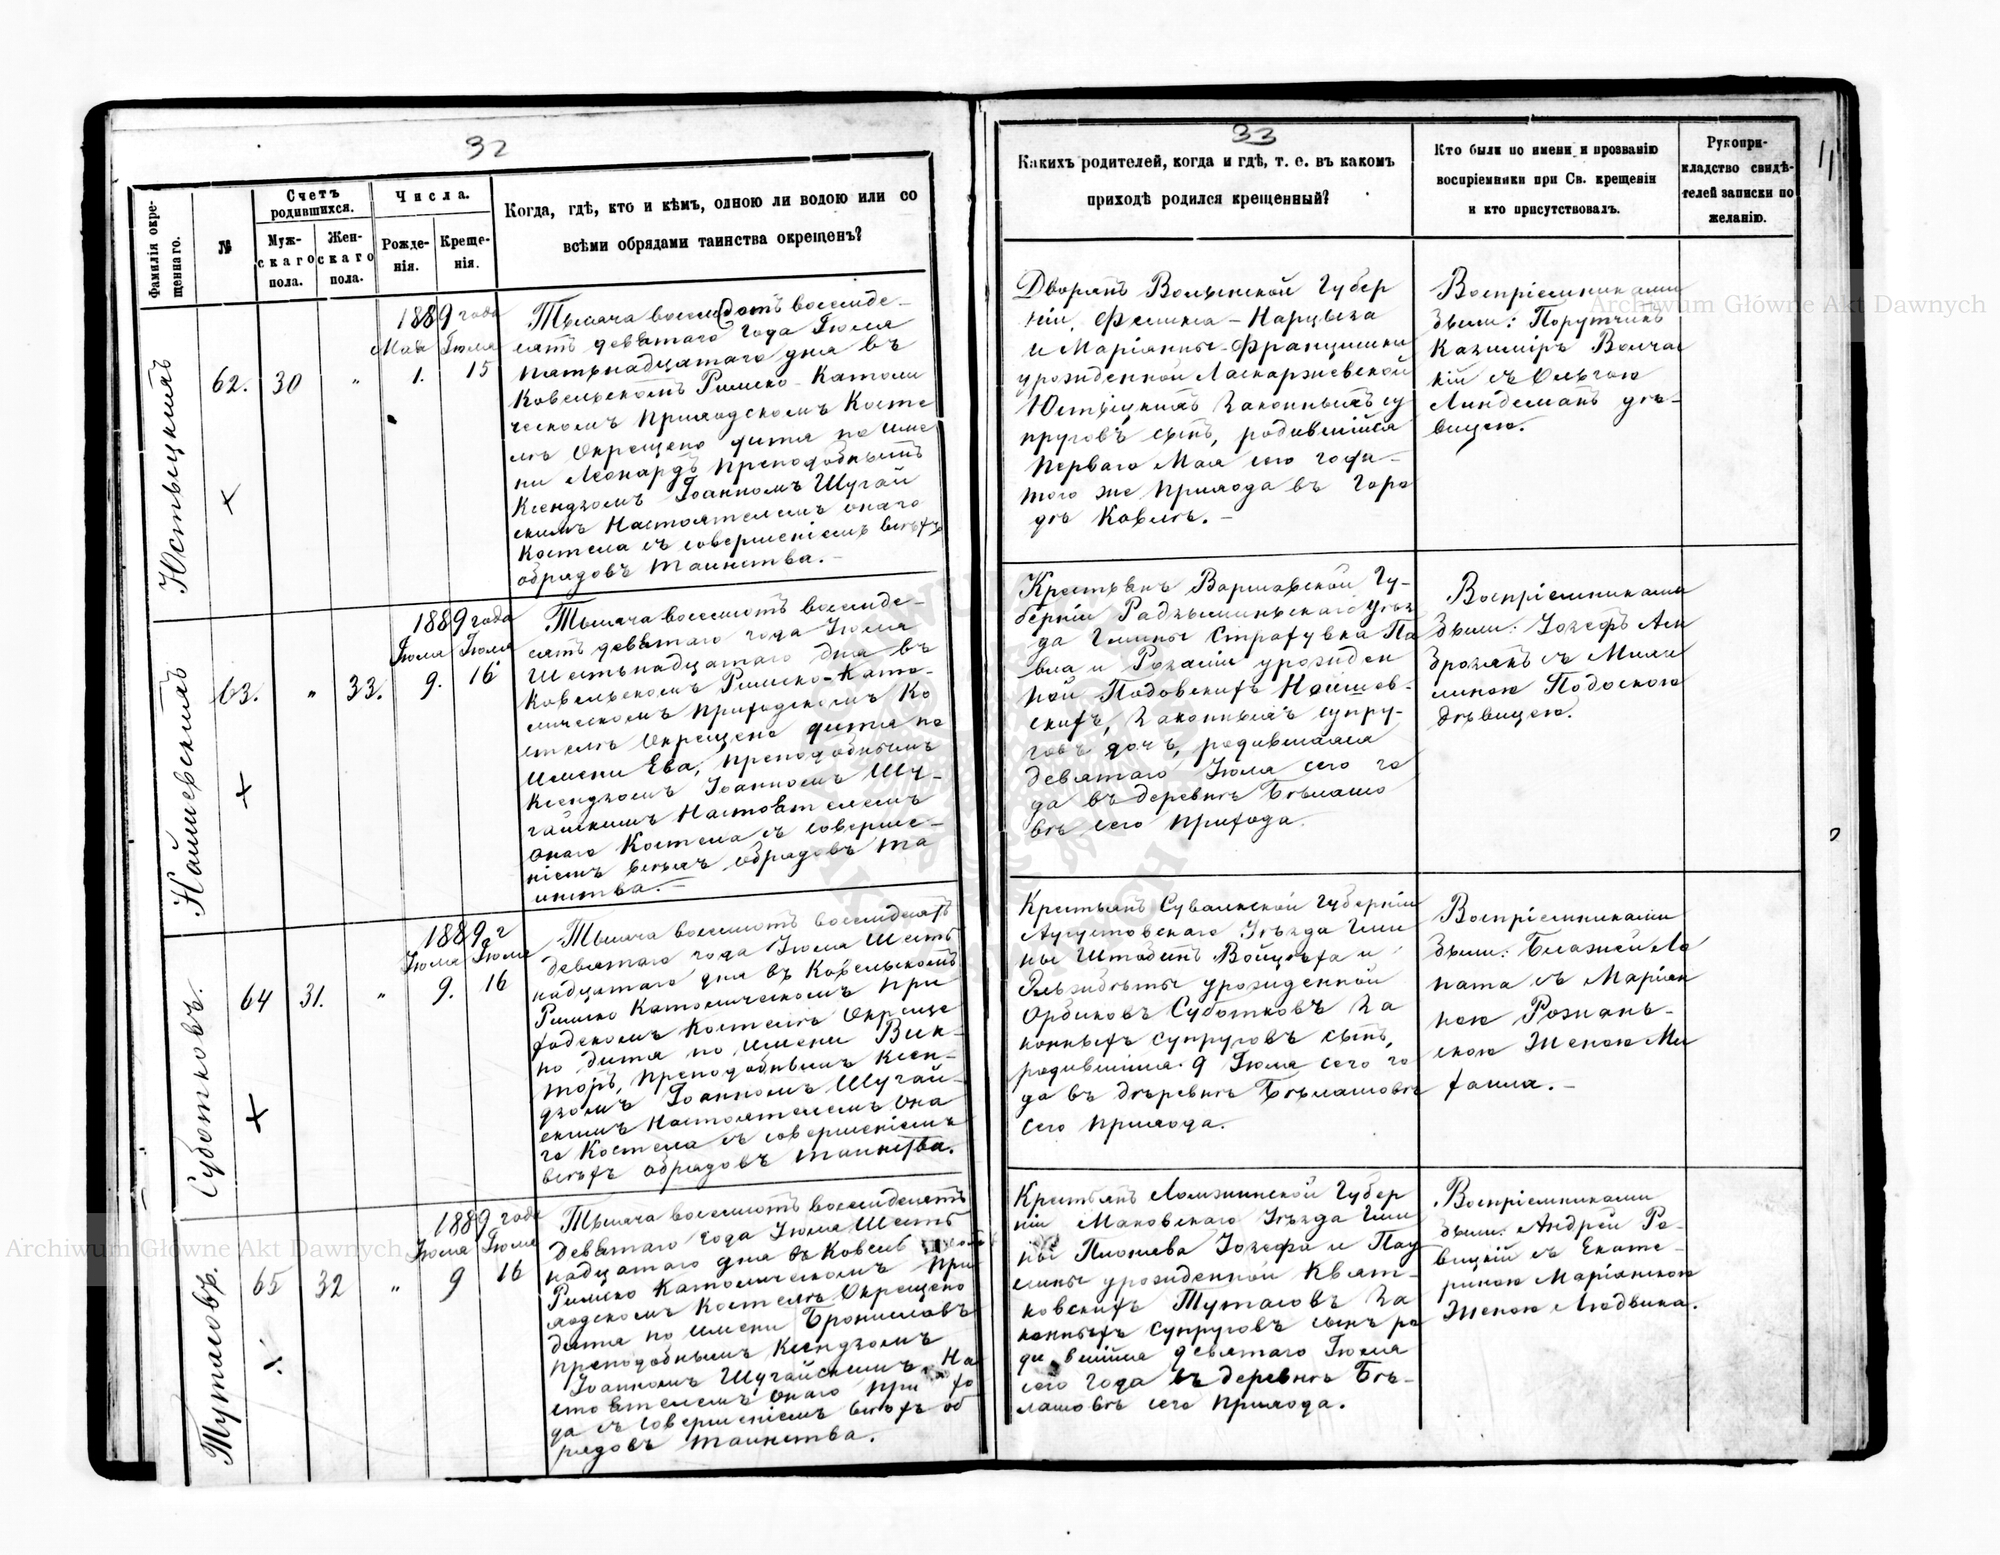 32
Фамилія окре-
щеннаго.
№
Счетъ
родившихся.
Муж-
скаго
пола.
Жен-
скаго
пола.
Числа.
Рожде-
нія.
Креще-
нія.
Когда, гдѣ, кто и кѣмъ, одною ли водою или со
всѣми обрядами таинства окрещенъ?
62.
30
"
1889 года
Мая Іюля
1. 15
Тысяча восемьсотъ восемьде-
сятъ девятаго года Іюля
пятьнадцатаго дня въ
Ковельскомъ Римско-Католи
ческомъ Приходскомъ Косте
лѣ Окрещено дитя по име
ни Леонардъ Преподобнымъ
Ксендзомъ Іоанномъ Шугай
скимъ Настоятелемъ онаго
Костела съ совершеніемъ всѣхъ
обрядовъ таинства.-
Найшевскихъ
63.
"
33.
1889 года
Іюля Іюля
9. 16
Тысяча восемьсотъ восемьде-
сятъ девятаго года Іюля
Шестьнадцатаго дня въ
Ковельскомъ Римско-Като-
лическомъ Приходскомъ Ко
стелѣ Окрещено дитя по
имени Ева, Преподобнымъ
Ксендзомъ Іоанномъ Шу-
гайскимъ Настоятелемъ
онаго Костела съ соверше-
ніемъ всѣхъ обрядовъ та
инства.-
Суботковъ.
64
31.
"
1889 г
Іюля Іюля
9. 16
Тысяча восемьсотъ восемьдесятъ
девятаго года Іюля Шесть
надцатаго дня въ Ковельскомъ
Римско Католическомъ При
ходскомъ Костелѣ Окреще
но дитя по имени Вик-
торъ, Преподобнымъ Ксен-
дзомъ Іоанномъ Шугай-
скимъ Настоятелемъ она
го Костела съ совершеніемъ
всѣхъ обрядовъ таинства.
Тутасовъ.
65
32
"
1889 года
Іюля Іюля
9 16
Тысяча восемьсотъ восемьдесятъ
девятаго года Іюля Шесть
надцатаго дня въ Ковель
Римско Католическомъ При
ходскомъ Костелѣ Окрещено
дитя по имени Брониславъ
Преподобнымъ Ксендзомъ
Іоанномъ Шугайскимъ На
стоятелемъ онаго При хо
да съ совершеніемъ всѣхъ об
рядовъ таинства.
33
Какихъ родителей, когда и гдѣ, т. е. въ какомъ
приходѣ родился крещенный?
Кто были по имени и прозванію
воспріемники при Св. крещеніи
и кто присутствовалъ.
Рукопри-
кладство свидѣ-
телей записки по
желанію.
11
Дворянъ Волынской Губер
ніи, Феликса-Нарцыза
и Маріанны-Францишки
урожденной Ласкаржевской
законныхъ су
пруговъ сынъ, родившійся
Перваго Мая сего года-
того же Прихода въ Горо
дѣ Ковелѣ.-
Воспріемниками
были: Порутчикъ
Казимиръ
кій съ Ольгою
Линдеманъ дѣ-
вицею.
Крестьянъ Варшавской Гу-
берніи Радзыминьскаго Уѣз
да Гмины Страхувка Па
вла и Розаліи урожден
ной Подовскихъ Найшев-
скихъ, законныхъ супру-
говъ дочь, родившаяся
девятаго Іюля сего го
да въ деревнѣ Бѣлашо
вѣ сего Прихода.
Воспріемниками
были: Іозефъ
съ
Подоскою
дѣвицею.
Крестьянъ Сувалкской Губерніи
Августовскаго Уѣзда Гми
ны Штабинъ Войцѣха и
Эльжбѣты урожденной
Орбиковъ Суботковъ за
конныхъ супруговъ сынъ,
родившійся 9 Іюля сего го
да въ дѣревнѣ Бѣлашовѣ
сего Прихода.
Воспріемниками
были: Блажей Ло
пата съ Маріан
ною
скою Женою Ми
хаила.-
Крестьянъ Ломжинской Губер
ніи Маковскаго Уѣзда Гми
ны Іозефа и Пау
лины урожденной Квят-
ковскихъ Тутасовъ за
конныхъ супруговъ сынъ ро
дившійся девятаго Іюля
сего года въ деревнѣ Бѣ-
лашовѣ сего Прихода.
Воспріемниками
были: Андрей Ра-
вицкій съ Екате-
риною Маріанскою
Женою Людвика.
Archiwum Główne Akt Dawnych
Archiwum Główne Akt Dawnych